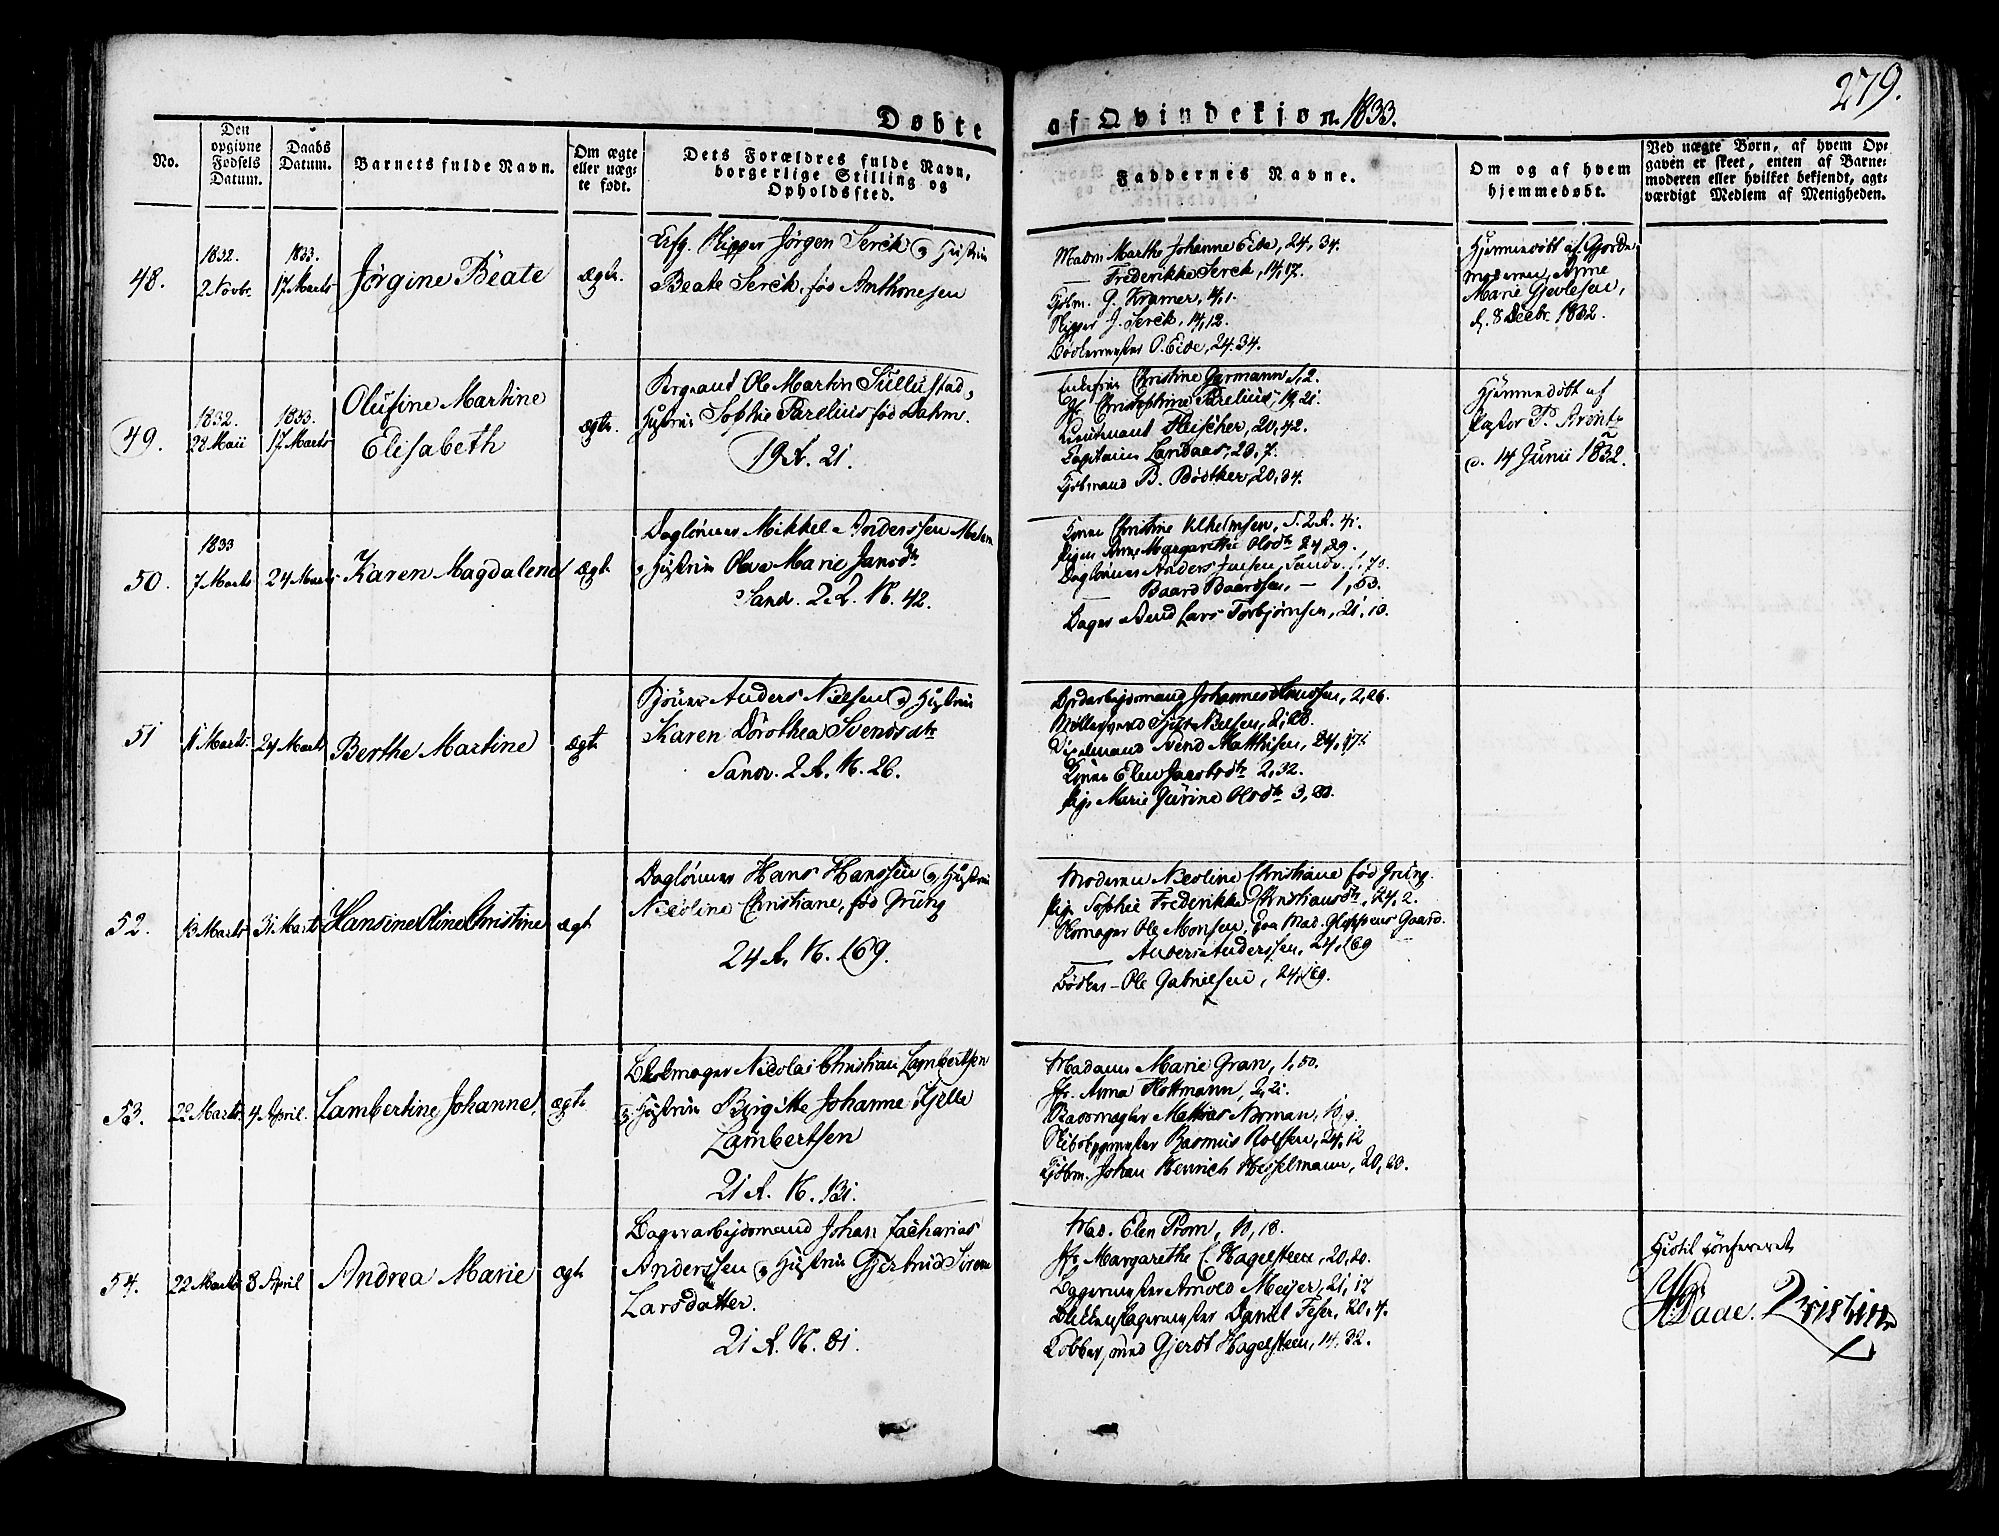 279.
Døbte af Qvindekjøn. 1833.
No.
Den opgivne Fødsels Datum.
Daabs Datum.
Barnets fulde Navn.
Om ægte eller uægte født.
Dets Forældres fulde Navn, borgerlige Stilling og Opholdssted.
Faddernes Navne.
Om og af hvem hjemmedøbt.
Ved uægte Børn, af hvem Opgaven er skeet, enten af Barnemoderen eller hvilket bekjendt, agtværdigt Medlem af Menigheden.
48.
1832.
2 Novbr.
1833.
17 Marts
Jørgine Beate
ægte
Skipper Jørgen Serck og Hustrue
Beate Serck, fød Anthonesen
Madm Marthe Johanne Eide, 24, 34.
— Frederikke Serck, 14, 17.
Kjøbm. G. Kramer,
Skipper J. Serck, 14, 12.
Bødkermester P. Eide, 24. 34.
Hjemmedøbt af Gjorde
moderen, Anne
Marie
d. 8 Decbr. 1832.
49.
1832.
28 Maii
1833.
17 Marts
Olufine Martine
Elisabeth
ægte.
Sergeant Ole Martin
Hustrue Sophie Parelius fød Dahm.
19 A. 21.
Christine Garmann 5, 2.
Jf. Christophine Parelius, 19, 21.
Lieutenant Fleischer, 20, 42.
Capitain Landaas, 20, 7.
Kjøbmand B. Bødtker, 20, 34.
Hjemmedøbt af
Pastor P.
d. 14 Junii 1832.
50.
1833
7 Marts
24 Marts
Karen Magdalene
ægte
Dagløner Mikkel Anderssen
og Hustrue Marie Jansdtr
Sandv. 2. R. N. 42.
Kone Christine Vilhelmsen, S. 2. R. 4.
Pigen Anne Margarethe Olsdtr 24, 29.
Dagløner Anders Jensen, Sandv. 1, 70.
— Baard Baardsen, — 1, 63.
Bager Svend Lars Torbjørnsen, 21, 10.
51
11 Marts.
24 Marts
Berthe Martine
ægte
Anders Nielsen og Hustrue
Karen Dorothea Svendsdtr
Sandv. 2 R. N. 26.
Johannes Hanssen, 2, 26.
Møllersvend Nielsen, 2, 28.
Svend Matthisen, 24, 17.
Kone Elen Jacobsdtr 2, 32.
Pige Marie Jürine Olsdtr 3, 20.
52.
13 Marts
31 Marts
Hansine Oline Christine
ægte
Dagløner Hans Hanssen og Hustrue
Nicoline Christiane, fød Grung
24 R. N. 169.
Moderen Nicoline Christiane fød Grung.
Pige Sophie Frederikke Christiansdtr, 24, 2.
Skomager Ole Monsen, paa Mad. Gloppens Gaard.
— Anders Anderssen, 24, 169
Bødker — Ole Gabrielsen, 24, 169.
53.
22 Marts
4 April.
Lambertine Johanne,
ægte
Nicolai Christian Lambertsen
og Hustrue Birgitte Johanne Kjelle
Lambertsen
21 R. N. 131.
Madame Marie Gran, 1, 50.
Jfr. Anna Hottmann, 2, 21.
Mathias Norman, 10, 9.
Skibsbygmester Rasmus Rolfsen, 24, 12
Kjøbm. Johan Henrich Hesselmann, 20, 20.
54.
22 Marts
8 April
Andrea Marie
ægte
Bagerarbejdsmand Johan Zacharias
Anderssen og Hustrue Gjertrud Sirene
Larsdatter.
21 R. N. 81.
Mad. Elen Prom, 10, 18.
Jfr. Margarethe C. Hagelsteen, 20, 20.
Bagermester Arnold Meyer, 21, 17
Daniel Fejer, 20, 4.
Gjerdt Hagelsteen, 14, 32.
Hidtil confereret
Daae.